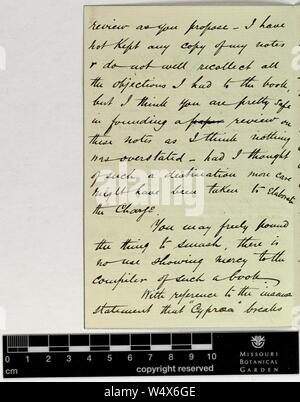 review as you propose - I have
not kept any copy of my notes
& do not well recollect all
the objections I had to the book,
but I think you are pretty safe
in founding a review on
these notes as I think nothing
was overstated - had I thought
of such a destination more care
might have been taken to Elaborate
the Charge.
You may freely pound
the thing to smash, there is
no use showing mercy to the
compiler of such a book.
With reference to the
statement that "Cypraea" breaks
0 1 2 3 4 5 6 7 8 9 10
cm
copyright reserved
MISSOURI
BOTANICAL
GARDEN
alamy
W4X6GE